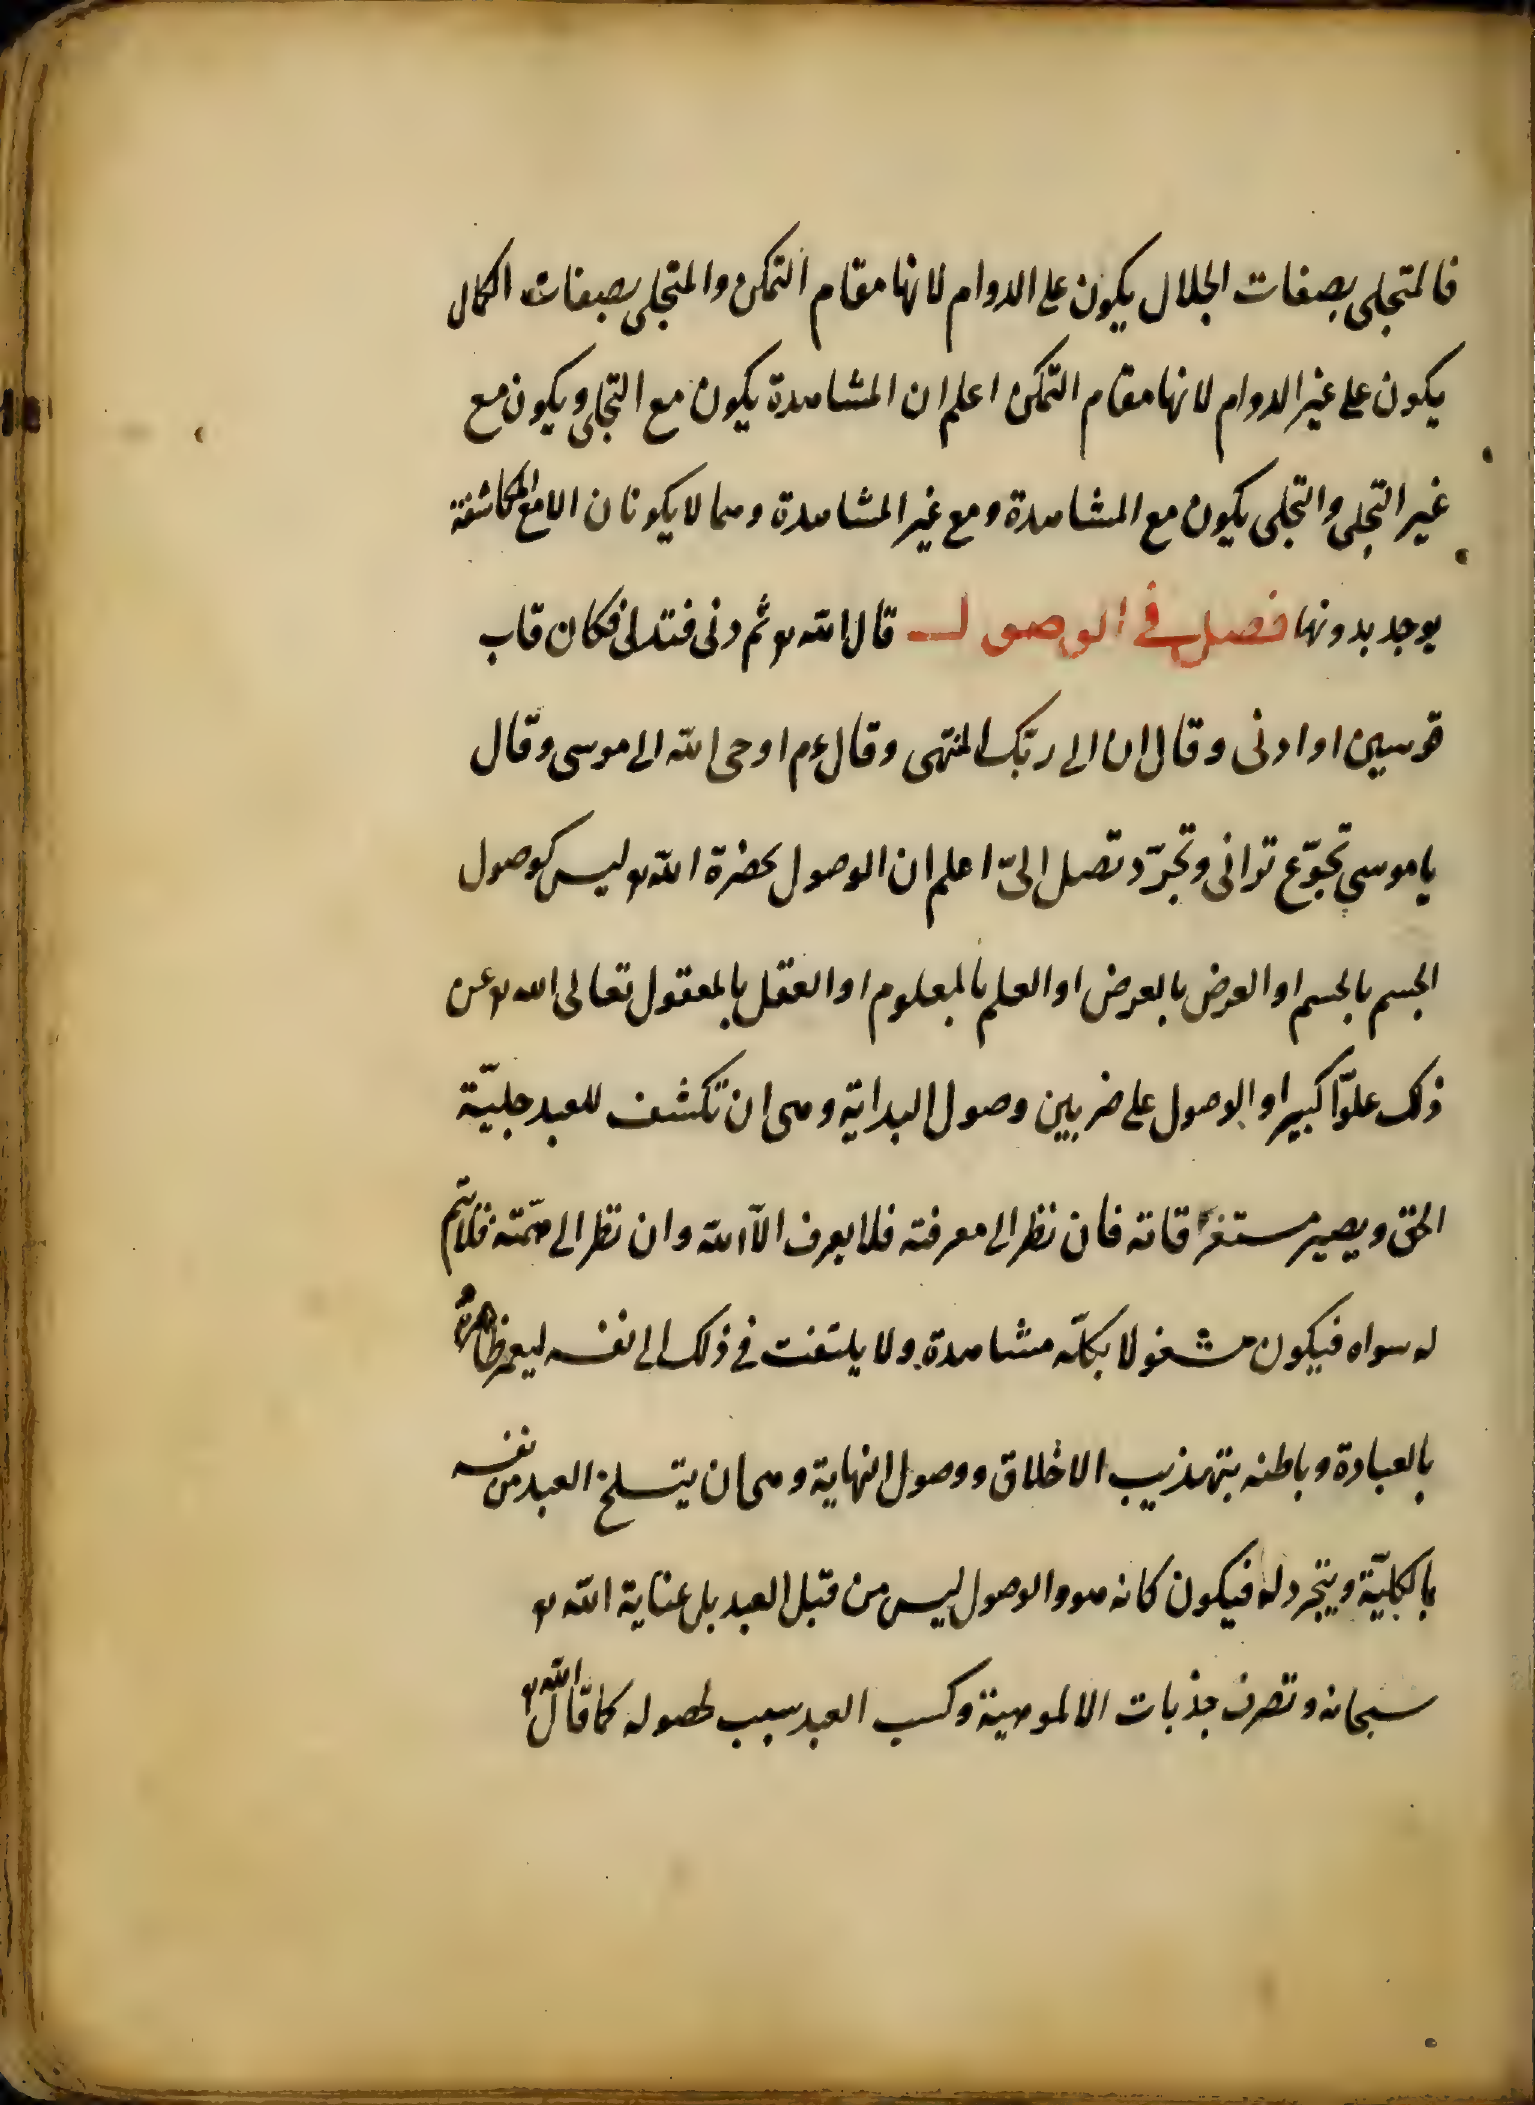 فالمتجلى بصفات الجلال يكون على الدوام لانها مقام التمكن والمتجلى بصفات الكمال
يكون على غير الدوام لانها مقام التمكن اعلم ان المشاهدة يكون مع التجلى ويكون مع
غير التجلى والتجلى يكون مع المشاهدة ومع غير المشاهدة وهما لا يكونان الا مع المكاشفة
يوجد بدونها فصل في الوصول قال الله تع ثم دنى فتدلى فكان قاب
قوسين او ادنى وقال ان الى ربك المنتهى وقال عم اوحى الله الى موسى وقال
يا موسى تجوّع ترانى وتجرّد تصل الىّ اعلم ان الوصول بحضرة الله تع ليس كوصول
الجسم بالجسم او العرض بالعرض او العلم بالمعلوم او العقل بالمعقول تعالى الله تع عن
ذلك علوّا كبيرا والوصول على ضربين وصول البداية وهى ان تكشف للعبد جليّة
الحق ويصير مستغرقا ته فان نظر الى معرفته فلا يعرف الاّ الله وان نظر الى همّته فلا يتم
له سواه فيكون مشغولا بكلّه مشاهدة ولا يلتفت في ذلك الى نفسه ليعمر ظاهرهُ
بالعبادة وباطنه بتهذيب الاخلاق ووصول النهاية وهى ان يتسلخ العبد من نفسه
بالكليّة ويتجرد له فيكون كانه هو والوصول ليس من قبل العبد بل عناية الله تع
سبحانه وتصرف جذبات الالوهية وكسب العبد سبب لحصوله كما قال الله تع